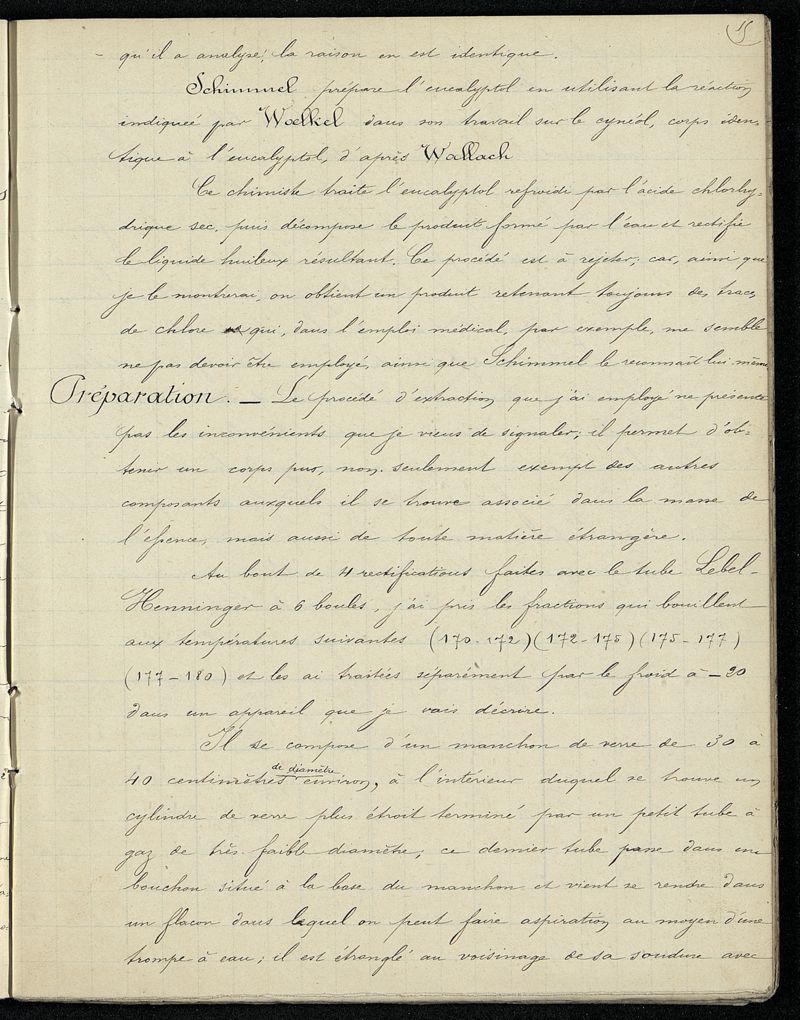 15
qu'il a analysé; la raison en est identique.
Schimmel prépare l'eucalyptol en utilisant la réaction
indiquée par Woelkel dans son travail sur le cynéol, corps iden-
tique à l'eucalyptol, d'après Wallach
Ce chimiste traite l'eucalyptol refroidi par l'acide chlorhy-
drique sec, puis décompose le produit formé par l'eau et rectifie
le liquide huileux résultant. Ce procédé est à rejeter; car, ainsi que
je le montrerai, on obtient un produit retenant toujours des traces
de chlore qui, dans l'emploi médical, par exemple, me semble
ne pas devoir être employé, ainsi que Schimmel le reconnaît lui même
Préparation. — Le procédé d'extraction que j'ai employé ne présente
pas les inconvénients que je viens de signaler; il permet d'ob-
tenir un corps pur, non-seulement exempt des autres
composants auxquels il se trouve associé dans la masse de
l'essence, mais aussi de toute matière étrangère.
Au bout de 4 rectifications faites avec le tube Lebel-
Henninger à 6 boules, j'ai pris les fractions qui bouillent
aux températures suivantes (170-172)(172-175)(175-177)
(177-180) et les ai traitées séparément par le froid à -20
dans un appareil que je vais décrire.
Il se compose d'un manchon de verre de 30 à
40 centimètres de diamètre environ, à l'intérieur duquel se trouve un
cylindre de verre plus étroit terminé par un petit tube à
gaz de très-faible diamètre; ce dernier tube passe dans un
bouchon situé à la base du manchon et vient se rendre dans
un flacon dans lequel on peut faire aspiration au moyen d'une
trompe à eau; il est étranglé au voisinage de sa soudure avec